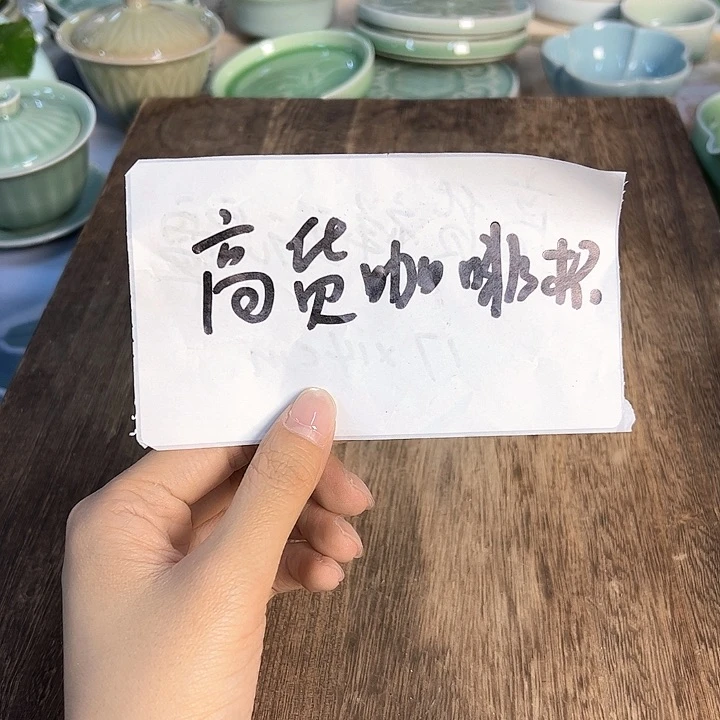 高货咖啡杯